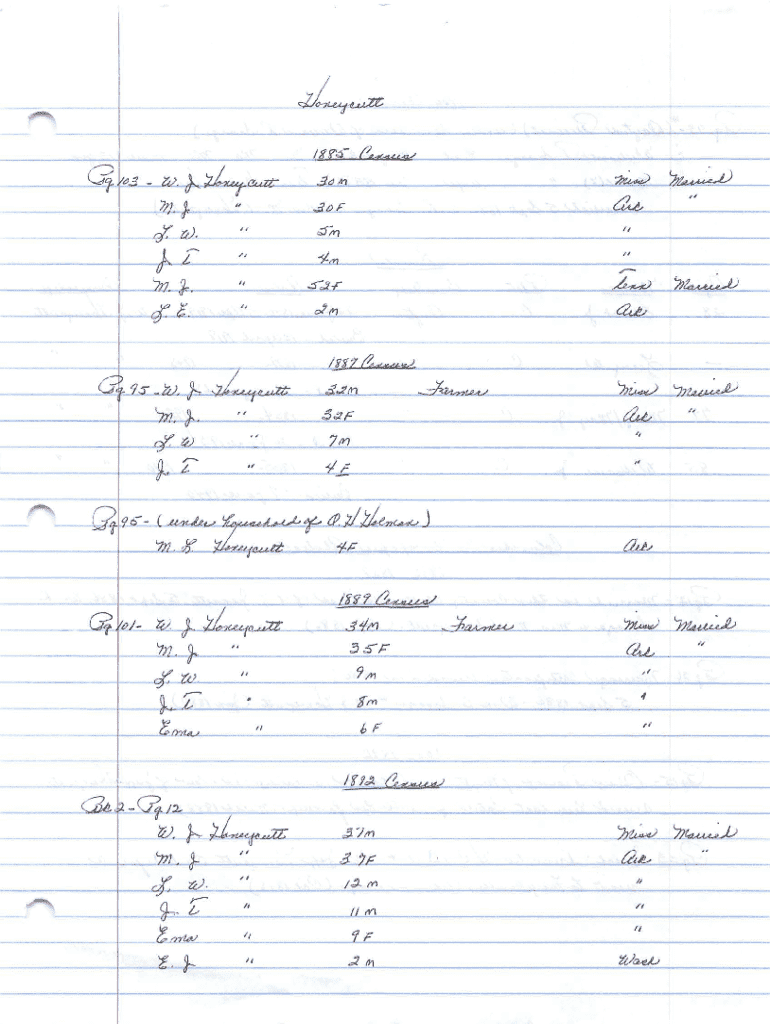 Honeycutt
1885 Census
Pg 103 - W. J Honeycutt 30M Miss Married
M. J. " 30F Ark "
L. W. " 5M "
J T " 4M "
M. J. " 52F Tenn Married
L. E. " 2M Ark
1887 Census
Pg. 95 - W. J Honeycutt 32M Farmer Miss Married
M. J. " 32F Ark "
L. W " 7M "
J. T " 4F "
Pg 95 - (under household of O. H Holman)
M. L Honeycutt 4F Ark
1889 Census
Pg 101 - W. J Honeycutt 34M Farmer Miss Married
M. J " 35F Ark "
L. W " 9M "
J. T " 8M "
Ema " 6F "
1892 Census
Bk 2 - Pg 12
W. J Honeycutt 37M Miss Married
M. J " 37F Ark "
L. W. " 12M "
J. T " 11M "
Ema " 9F "
E. J " 2M Wash